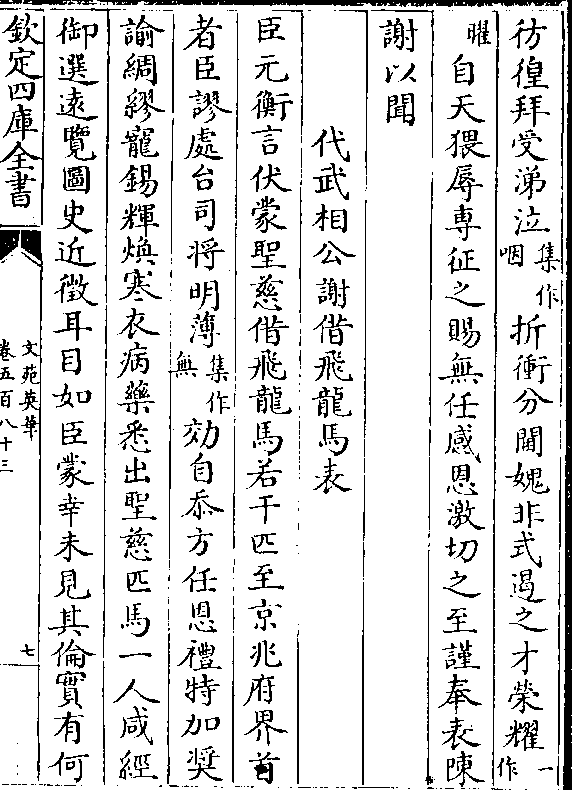 彷徨拜受涕泣集作咽折衝分閫媿非式遏之才榮耀一作
曜自天猥辱専征之賜無任感恩激切之至謹奉表陳
謝以聞
代武相公謝借飛龍馬表
臣元衡言伏蒙聖慈借飛龍馬若干匹至京兆府界首
者臣謬處台司将明薄集作無効自忝方任恩禮特加奨
諭綢繆寵錫輝煥寒衣病藥悉出聖慈匹馬一人咸經
御選遠覽圖史近徵耳目如臣蒙幸未見其倫實有何
欽定四庫全書
文苑英華
卷五百八十三
七